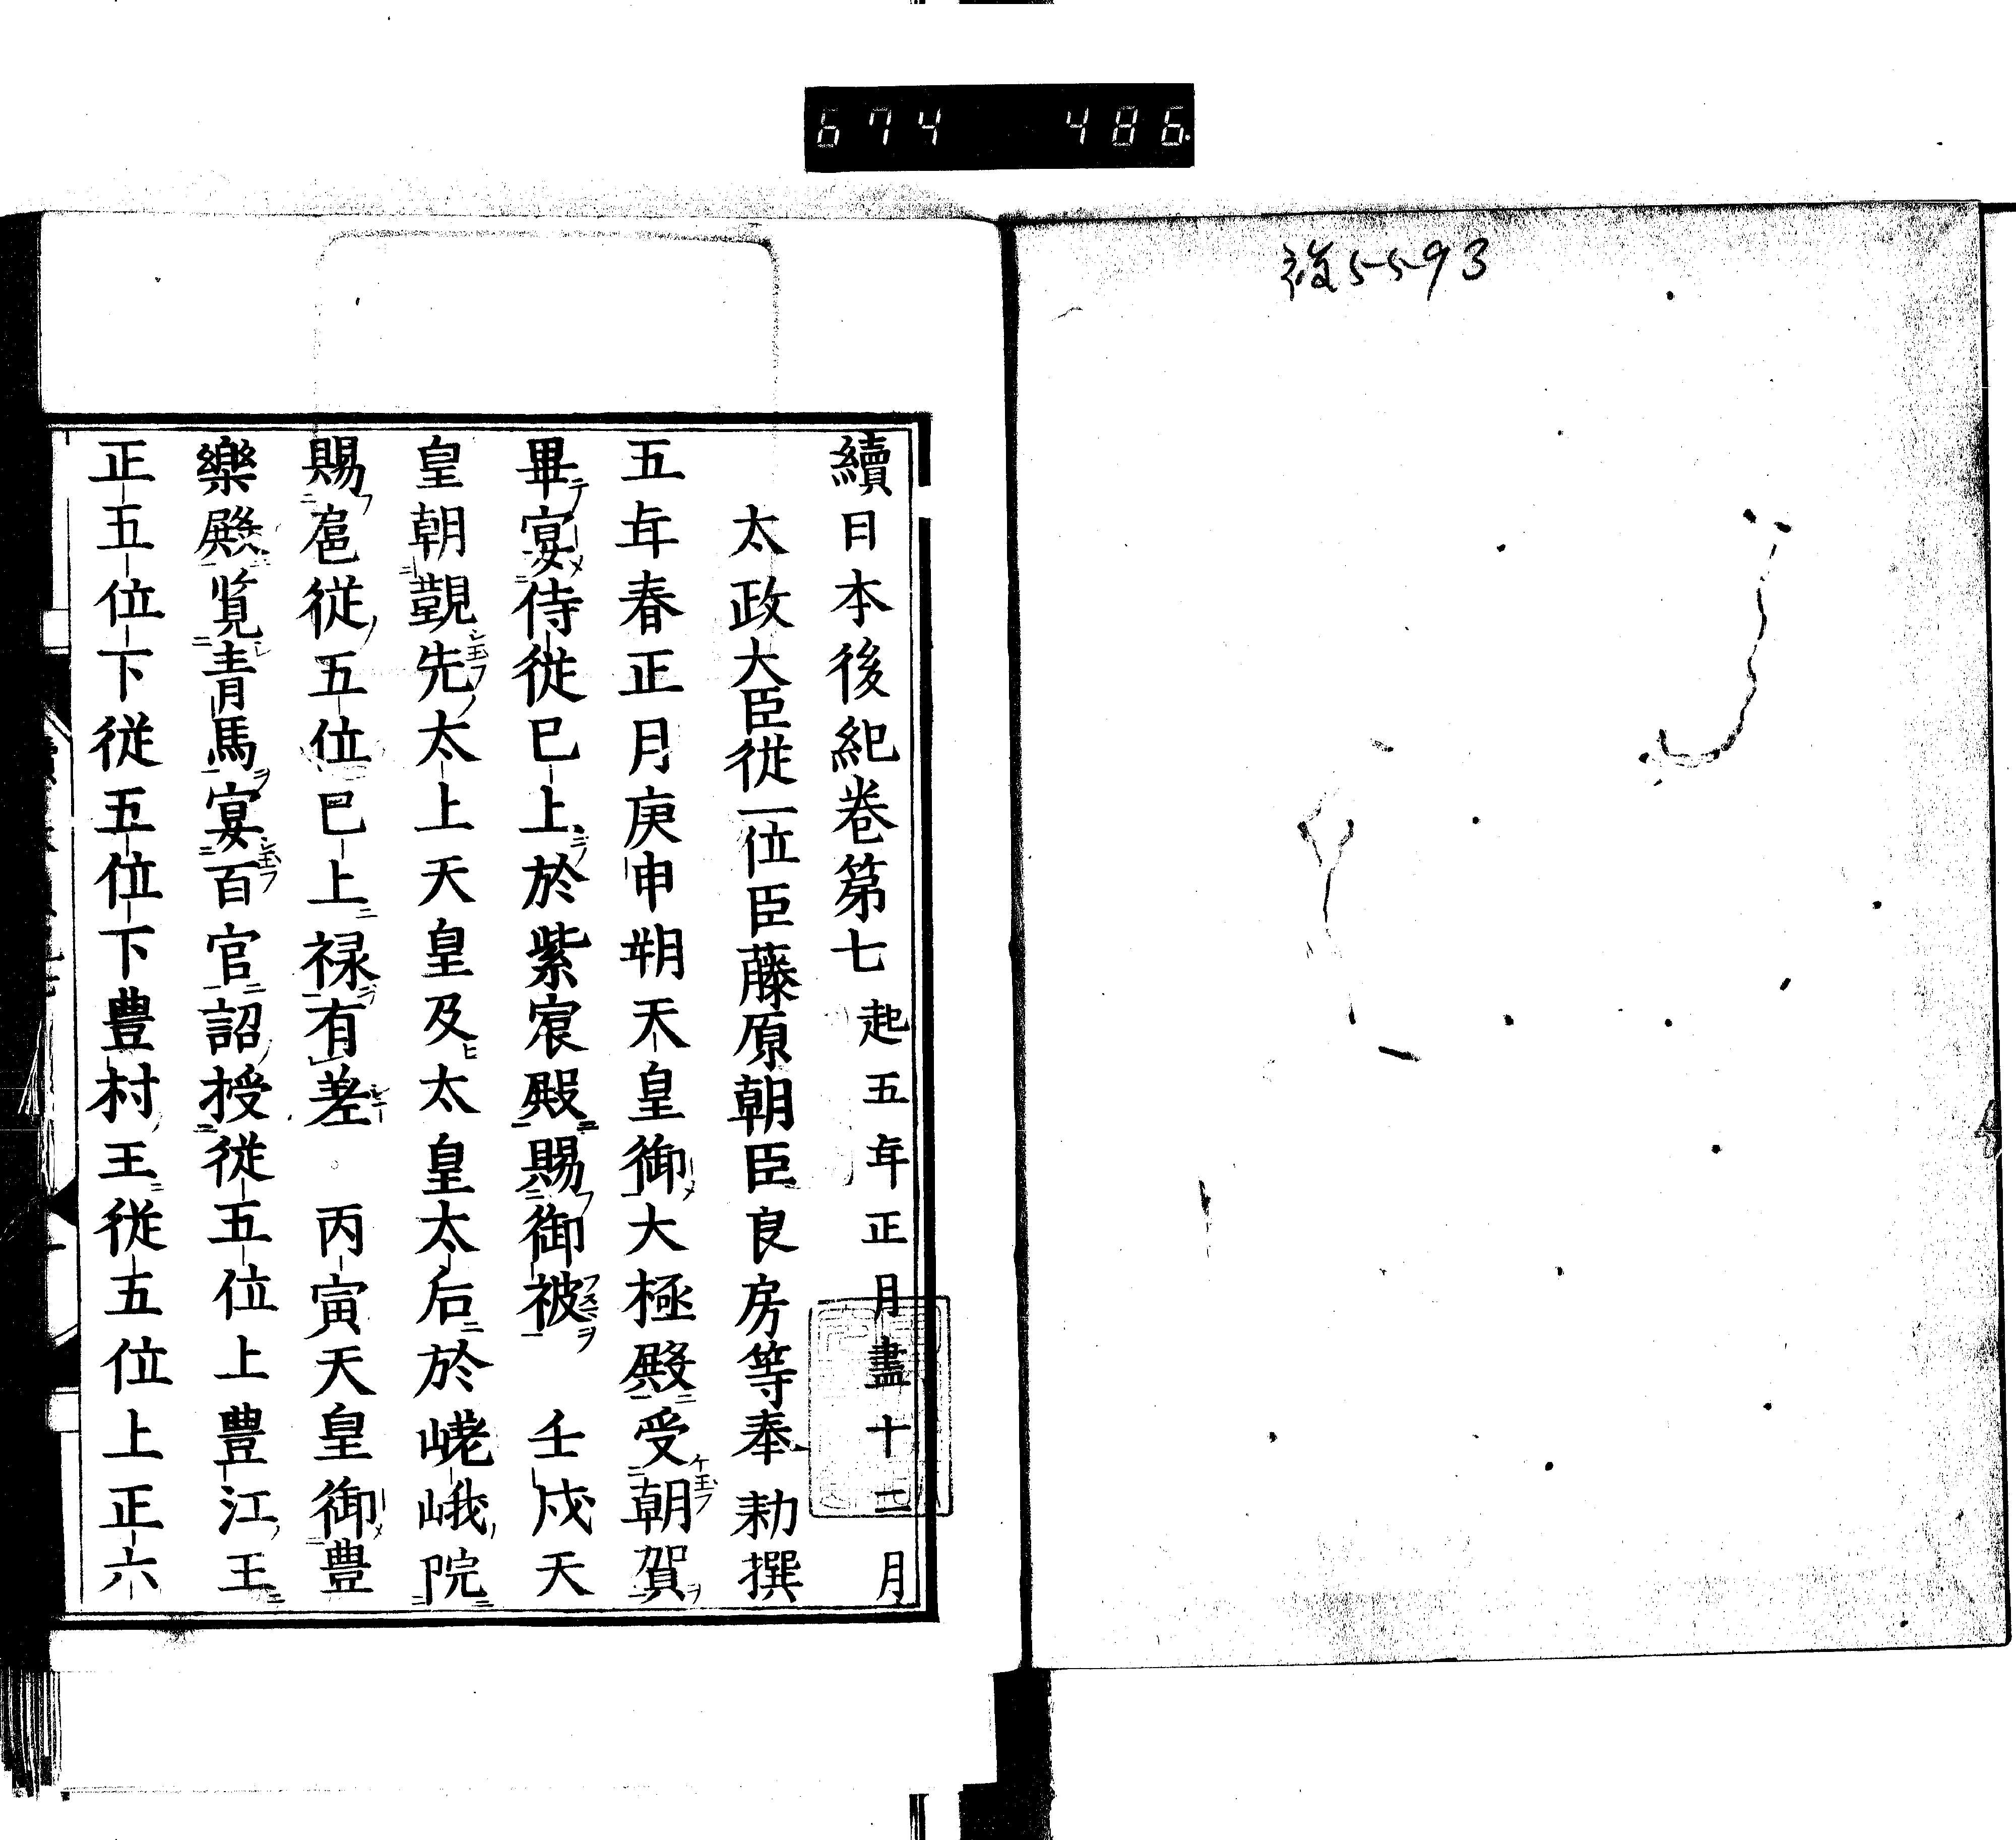 674 486
復5593
續日本後紀巻第七起五年正月盡十二月
太政大臣從一位臣藤原朝臣良房等奉勅撰
五年春正月庚申朔天皇御大極殿受朝賀
畢宴侍從已上於紫宸殿賜御被 壬戌天
皇朝覲先太上天皇及太皇太后於嵯峨院
賜扈從五位已上禄有差 丙寅天皇御豊
樂殿覧青馬宴百官詔授從五位上豊江王
正五位下從五位下豊村王從五位上正六